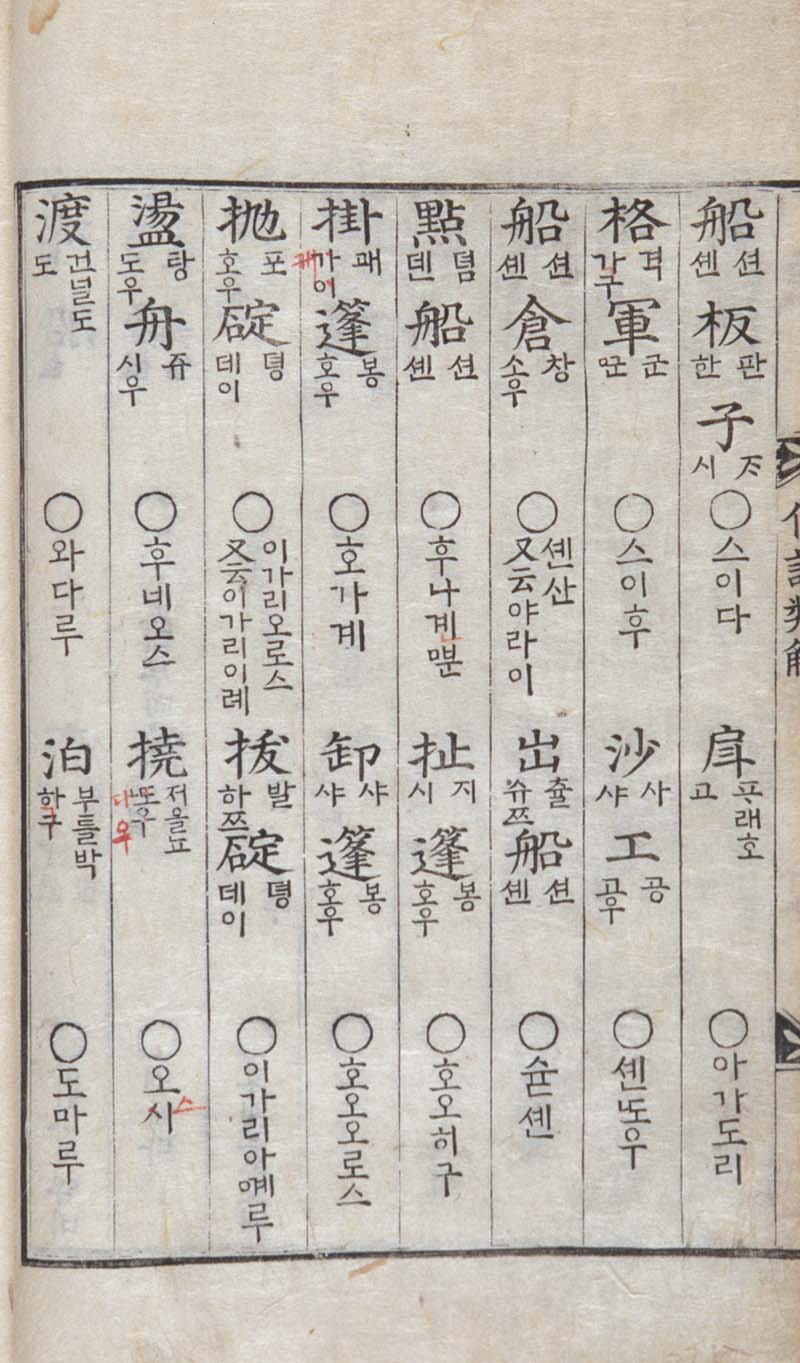 倭語類解
船 션 셴 板 판 한 子 ᄌᆞ 시 ○스이다 戽 프래호 고 ○아가도리
格 격 가구 軍 군 ᅌᅮᆫ ○스이후 沙 사 샤 工 공 고우 ○셴ᄯᅩ우
船 션 셴 倉 창 소우 ○셴산 又云야라이 出 츌 슈쯔 船 션 셴 ○슏셴
點 뎜 뎬 船 션 셴 ○후나계ᇝ분 扯 지 시 篷 봉 호우 ○호오히구
掛 괘 까이 篷 봉 호우 ○호가계 卸 샤 샤 篷 봉 호우 ○호오오로스
抛 포 호우 碇 뎡 데이 ○이가리오로스 又云이가리이례 拔 발 하쯔 碇 뎡 데이 ○이가리아ᅌᅨ루
盪 탕 도우 舟 쥬 시우 ○후녜오스 撓 저을뇨 ᄯᅩ우 ○오시
渡 건널도 도 ○와다루 泊 부틀박 하구 ○도마루